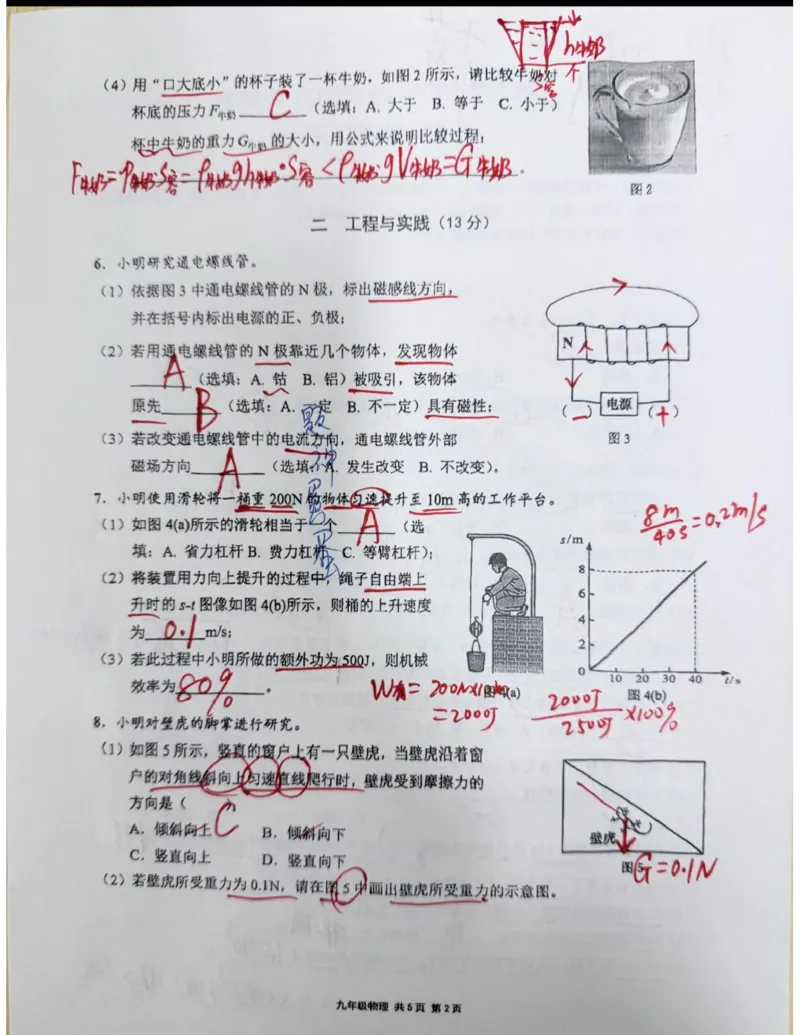 h牛奶
(4) 用“口大底小”的杯子装了一杯牛奶，如图2所示，请比较牛奶对
杯底的压力F牛奶 C （选填：A. 大于 B. 等于 C. 小于）
杯中牛奶的重力G牛奶的大小，用公式来说明比较过程：
F牛奶=P牛奶·S容=ρ牛奶gh牛奶·S容<ρ牛奶gV牛奶=G牛奶。
图2
二 工程与实践（13分）
6．小明研究通电螺线管。
(1) 依据图3中通电螺线管的N极，标出磁感线方向，
并在括号内标出电源的正、负极；
(2) 若用通电螺线管的N极靠近几个物体，发现物体
A （选填：A. 钴 B. 铝）被吸引，该物体
原先 B （选填：A. 一定 B. 不一定）具有磁性；
(3) 若改变通电螺线管中的电流方向，通电螺线管外部
磁场方向 A （选填：A. 发生改变 B. 不改变）。
N
(－) 电源 (+)
图3
7．小明使用滑轮将一桶重200N的物体匀速提升至10m高的工作平台。
(1) 如图4(a)所示的滑轮相当于一个 A （选
填：A. 省力杠杆 B. 费力杠杆 C. 等臂杠杆）；
(2) 将装置用力向上提升的过程中，绳子自由端上
升时的s-t图像如图4(b)所示，则桶的上升速度
为 0.1 m/s；
(3) 若此过程中小明所做的额外功为500J，则机械
效率为 80% 。
8m/40s=0.2m/s
s/m
8
6
4
2
0 10 20 30 40 t/s
图4(a)
图4(b)
W有=200N×10m
=2000J
2000J/2500J×100%
8．小明对壁虎的脚掌进行研究。
(1) 如图5所示，竖直的窗户上有一只壁虎，当壁虎沿着窗
户的对角线斜向上匀速直线爬行时，壁虎受到摩擦力的
方向是（ C ）
A．倾斜向上 B．倾斜向下
C．竖直向上 D．竖直向下
(2) 若壁虎所受重力为0.1N，请在图5中画出壁虎所受重力的示意图。
壁虎
图5
G=0.1N
九年级物理 共5页 第2页